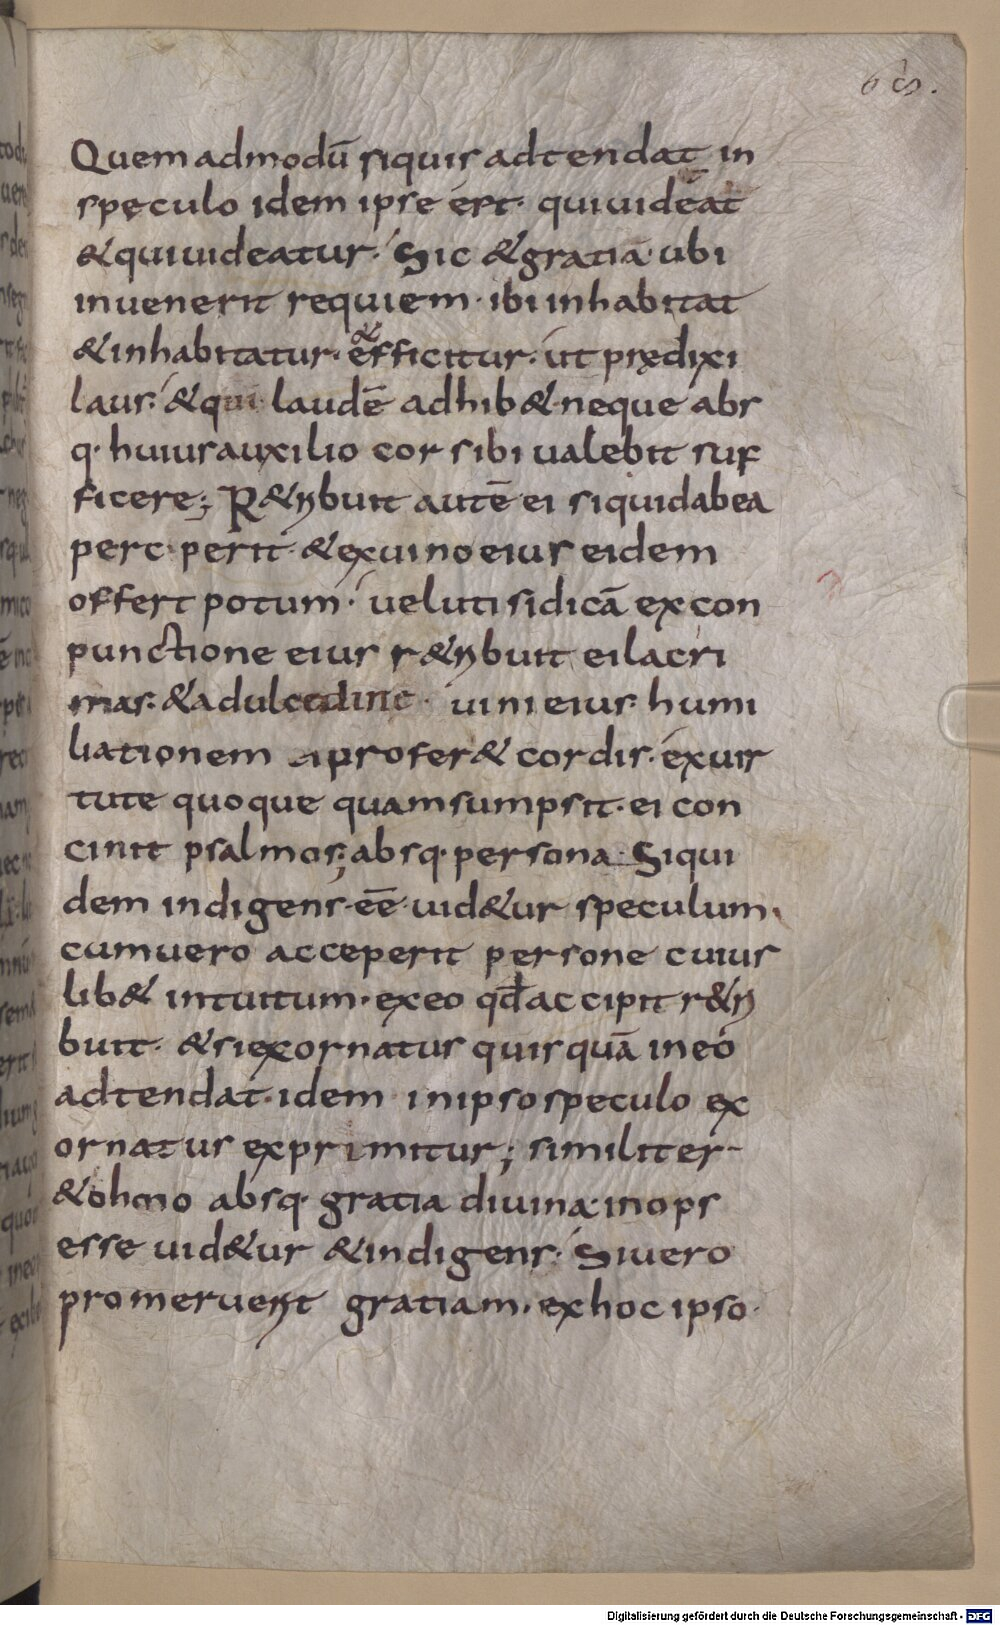 Quemadmodū siquis adtendat in
speculo idem ipse ert· quiuideat
&quiuideatur· Sic &gratia· ubi
inuenerit requiem· ibi inhabitat
&inhabitatur· & efficitur· ut prędixi
laus· &qui laudē adhib&· neque abs
q· huius auxilio cor sibi ualebit suf
ficere; R&ribuit autē ei siquid abea
percperit· &exuino eius eidem
offert potum· ueluti si dicā ex con
punctione eius r&ribuit ei lacri
mas· &a dulcedine uini eius humi
liationem a profer& cordis· exuir
tute quoque quam sumpsit· ei con
cinit psalmos; absq· persona· Siqui
dem indigens· eē· uid&ur speculum·
cum uero acceperit persone cuius
lib& intuitum· exeo qđ accipit r&ri
buit· &si exornatus quisquā in eo
adtendat· idem inipso speculo ex
ornatus exprimitur; similiter
&ohmo absq· gratia diuina· inops
esse uid&ur &indigens· Siuero
promeruerit gratiam· exhoc ipso·
Digitalisierung gefördert durch die Deutsche Forschungsgemeinschaft - DFG